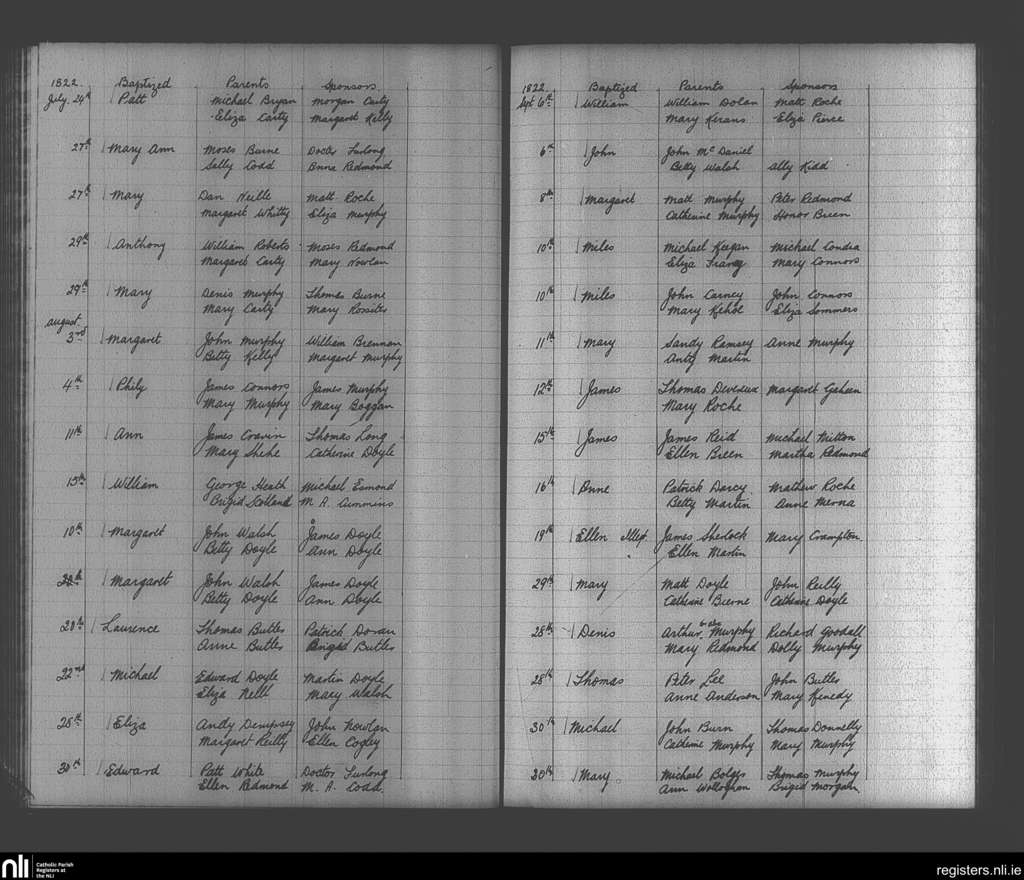 1822. Baptized Parents Sponsors
July. 24th Patt Michael Bryan Morgan Carty
Eliza Carty Margaret Kelly
27th Mary Ann Moses Burne Doctor Furlong
Sally Codd Anne Redmond
27th Mary Dan Neille Matt Roche
Margaret Whitty Eliza Murphy
29th Anthony William Roberts Moses Redmond
Margaret Carty Mary Nowlan
29th Mary Denis Murphy Thomas Burne
Mary Carty Mary Rossiter
August
3rd Margaret John Murphy William Brennan
Betty Kelly Margaret Murphy
4th Phily James Connors James Murphy
Mary Murphy Mary Boggan
11th Ann James Cravin Thomas Long
Mary Shehe Catherine Doyle
15th William George Heath Michael Esmond
Brigid Scotland M. A. Cummins
10th Margaret John Walsh James Doyle
Betty Doyle Ann Doyle
Margaret John Walsh James Doyle
Betty Doyle Ann Doyle
20th Laurence Thomas Butler Patrick Doran
Anne Butler Butler
22nd Michael Edward Doyle Martin Doyle
Eliza Nell Mary Walsh
28th Eliza Andy Dempsey John Nowlan
Margaret Reilly Ellen Cogley
30th Edward Patt White Doctor Furlong
Ellen Redmond M. A. Codd.
1822. Baptized Parents Sponsors
Sept 6th William William Dolan Matt Roche
Mary Kerans Eliza Pierce
6th John John McDaniel
Betty Walsh Sally Kidd
8th Margaret Matt Murphy Peter Redmond
Catherine Murphy Honor Breen
10th Miles Michael Keegan Michael Condra
Eliza Mary Connors
10th Miles John Carney John Connors
Mary Kehoe Eliza Sommers
11th Mary Sandy Ramsey Anne Murphy
Anty Martin
12th James Thomas Devereux Margaret Gahan
Mary Roche
15th James James Reid Michael Mitton
Ellen Breen Martha Redmond
16th Anne Patrick Darcy Mathew Roche
Betty Martin Anne Merna
19th Ellen James Sherlock Mary Crampton
Ellen Martin
29th Mary Matt Doyle John Reilly
Catherine Byrne Catherine Doyle
28th Denis Arthur Murphy Richard Goodall
Mary Redmond Dolly Murphy
28th Thomas Peter Lee John Butler
Anne Anderson Mary Kenedy
30th Michael John Burn Thomas Donnelly
Catherine Murphy Mary Murphy
30th Mary Michael Bolger Thomas Murphy
Ann Brigid Morgan
nli Catholic Parish
Registers at
the NLI
registers.nli.ie